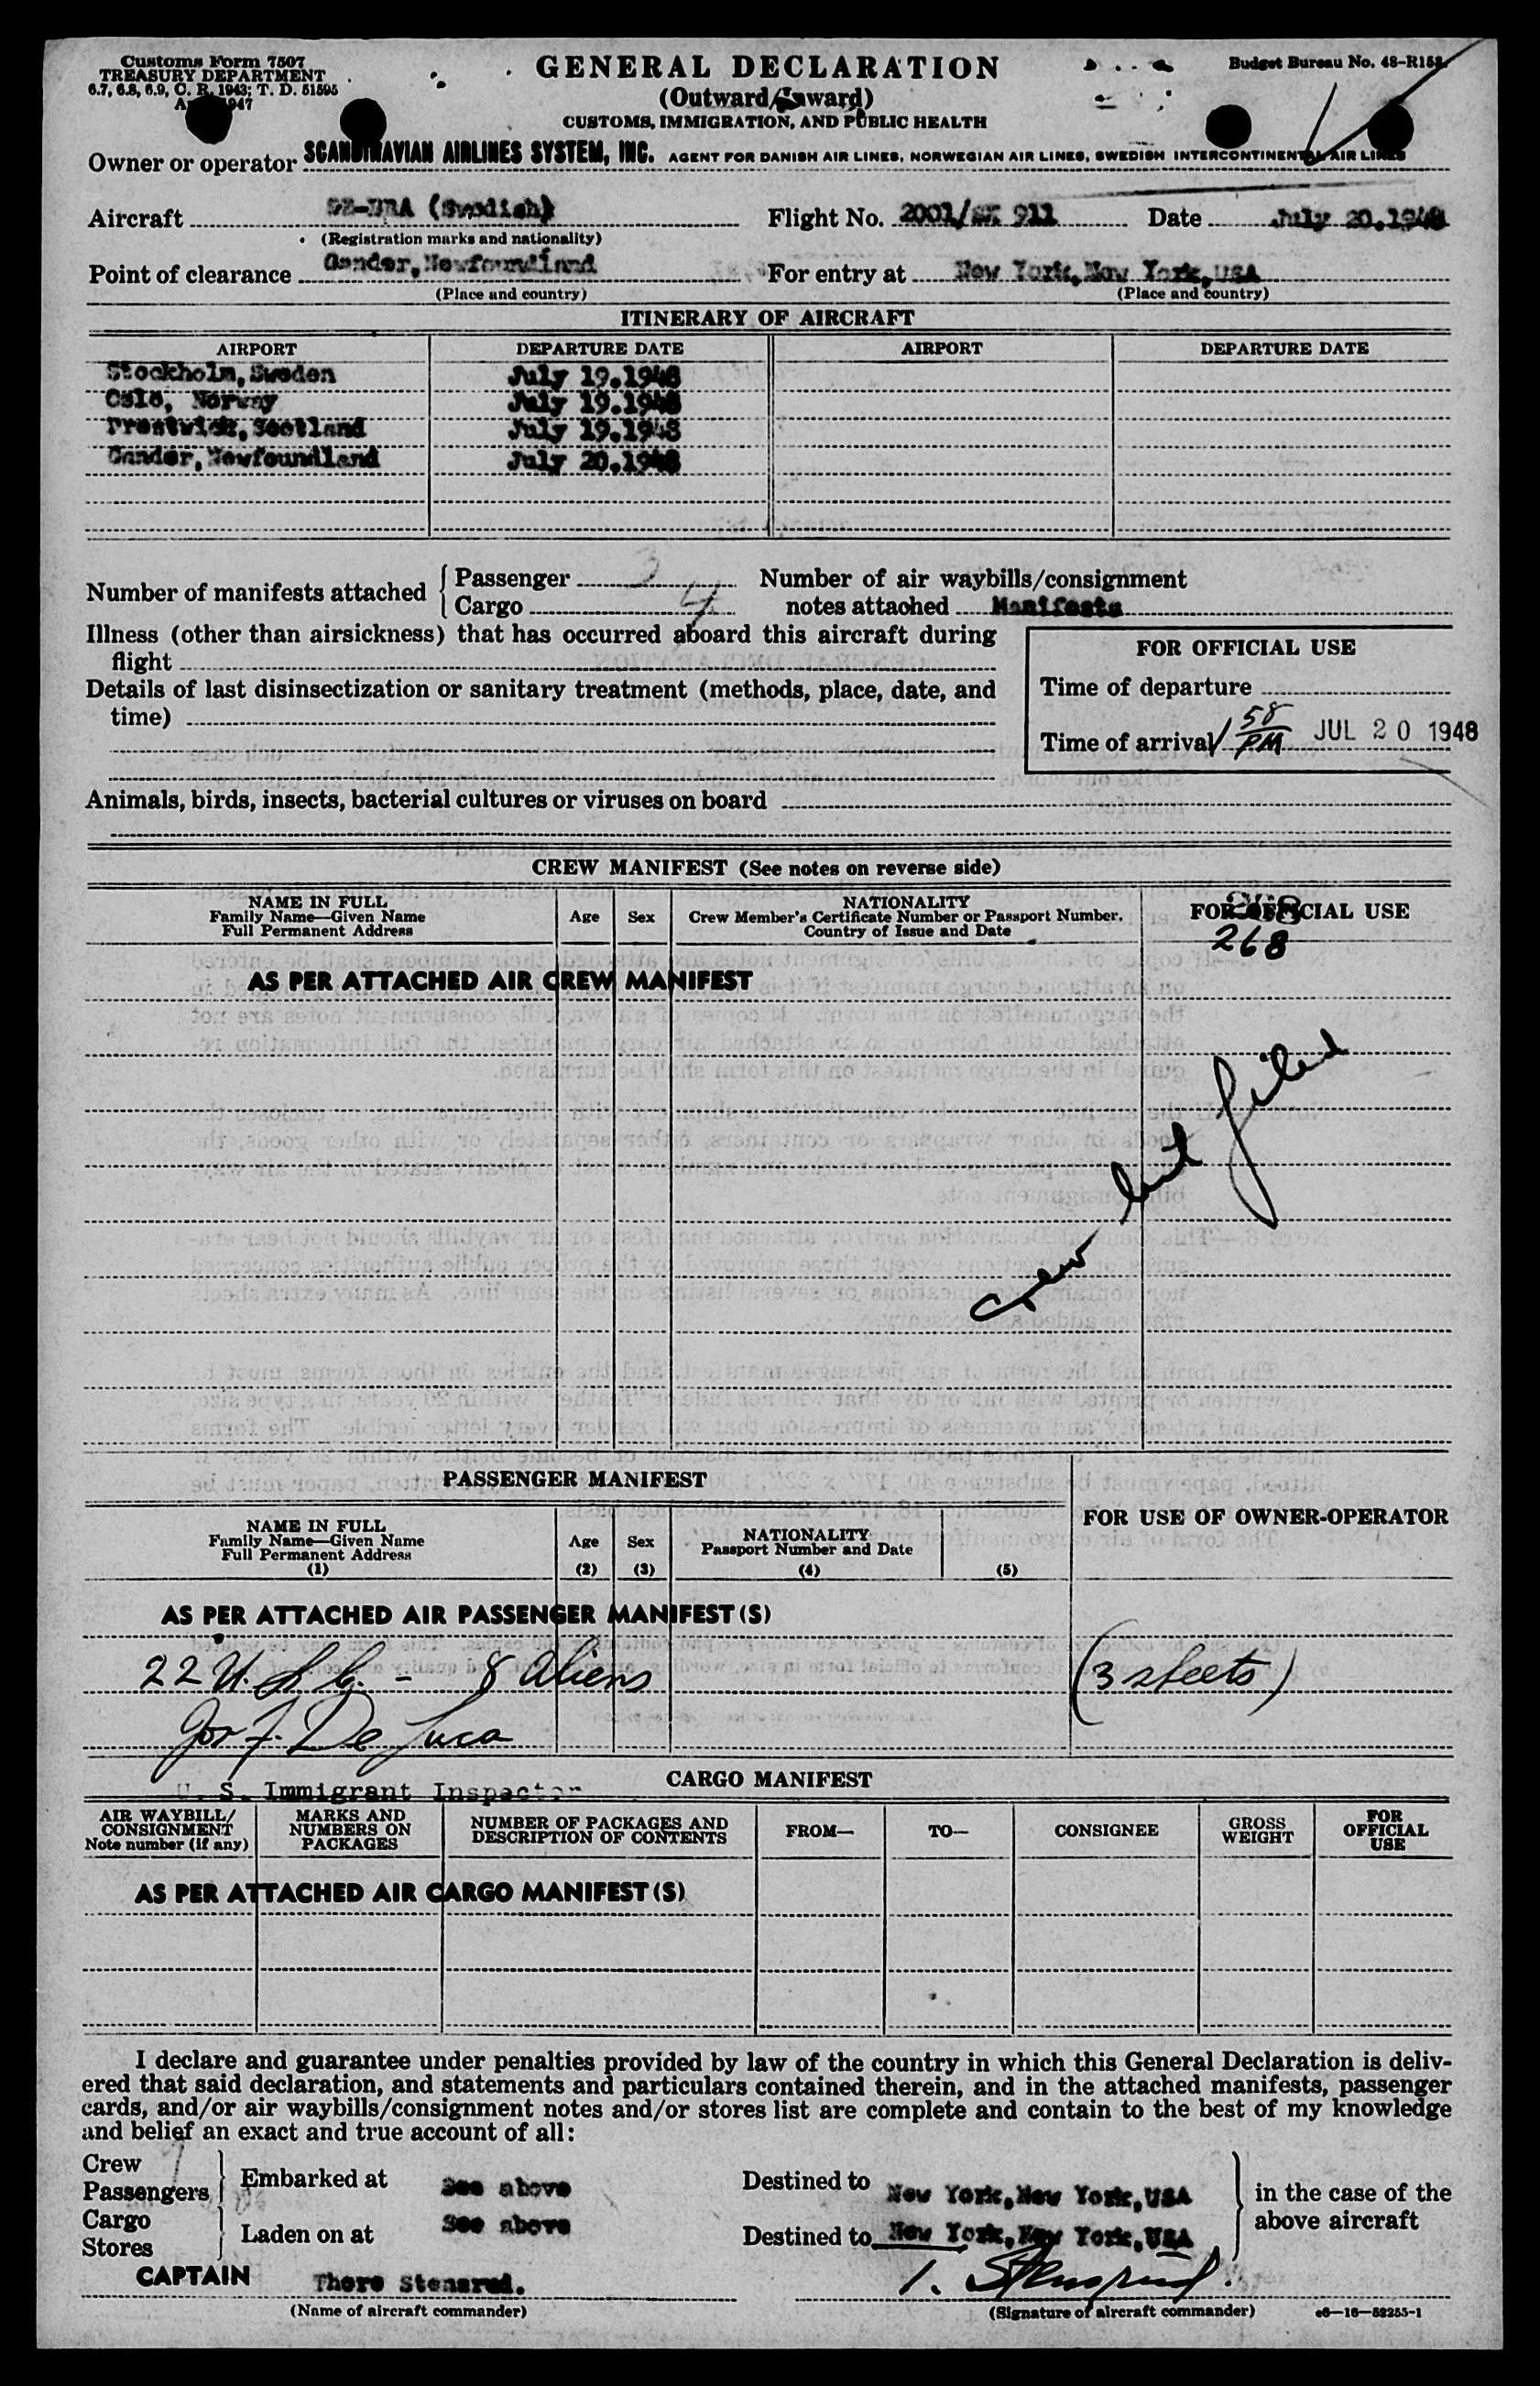 Customs Form 7507
TREASURY DEPARTMENT
6.7, 6.8, 6.9, C. R. 1943; T. D. 51595
1947
GENERAL DECLARATION
(Outward/Inward)
CUSTOMS, IMMIGRATION, AND PUBLIC HEALTH
Budget Bureau No. 48-R158.
Owner or operator SCANDINAVIAN AIRLINES SYSTEM, INC. AGENT FOR DANISH AIR LINES, NORWEGIAN AIR LINES, SWEDISH INTERCONTINENTAL AIR LINES
Aircraft (Swedish) Flight No. 2001/SK 911 Date July 20.1948
(Registration marks and nationality)
Point of clearance Gander, Newfoundland For entry at New York, New York, USA
(Place and country) (Place and country)
ITINERARY OF AIRCRAFT
AIRPORT DEPARTURE DATE AIRPORT DEPARTURE DATE
Stockholm, Sweden July 19.1948
Oslo, Norway July 19.1948
Prestwick, Scotland July 19.1948
Gander, Newfoundland July 20.1948
Number of manifests attached { Passenger 3 Number of air waybills/consignment
Cargo 4 notes attached Manifests
Illness (other than airsickness) that has occurred aboard this aircraft during
flight
Details of last disinsectization or sanitary treatment (methods, place, date, and
time)
FOR OFFICIAL USE
Time of departure
Time of arrival 1 58 PM JUL 20 1948
Animals, birds, insects, bacterial cultures or viruses on board
CREW MANIFEST (See notes on reverse side)
NAME IN FULL
Family Name—Given Name
Full Permanent Address
Age Sex
NATIONALITY
Crew Member's Certificate Number or Passport Number.
Country of Issue and Date
FOR OFFICIAL USE
268
AS PER ATTACHED AIR CREW MANIFEST
Crew list filed
PASSENGER MANIFEST
FOR USE OF OWNER-OPERATOR
NAME IN FULL
Family Name—Given Name
Full Permanent Address
(1)
Age
(2)
Sex
(3)
NATIONALITY
Passport Number and Date
(4) (5)
AS PER ATTACHED AIR PASSENGER MANIFEST(S)
22 U.S.C. - 8 Aliens (3 sheets)
Jos F. De Luca
U. S. Immigrant Inspector
CARGO MANIFEST
AIR WAYBILL/
CONSIGNMENT
Note number (if any)
MARKS AND
NUMBERS ON
PACKAGES
NUMBER OF PACKAGES AND
DESCRIPTION OF CONTENTS
FROM— TO— CONSIGNEE
GROSS
WEIGHT
FOR
OFFICIAL
USE
AS PER ATTACHED AIR CARGO MANIFEST(S)
I declare and guarantee under penalties provided by law of the country in which this General Declaration is deliv-
ered that said declaration, and statements and particulars contained therein, and in the attached manifests, passenger
cards, and/or air waybills/consignment notes and/or stores list are complete and contain to the best of my knowledge
and belief an exact and true account of all:
Crew
Passengers } Embarked at See above Destined to New York, New York, USA } in the case of the
Cargo above aircraft
Stores } Laden on at See above Destined to New York, New York, USA
CAPTAIN Thore Stensrud.
(Name of aircraft commander) (Signature of aircraft commander) c6—16—52255-1